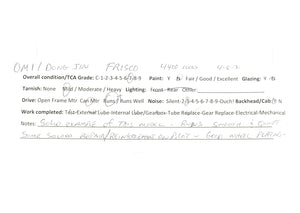 OMI/DONG JIN FRISCO 4-6-2
Overall condition/TCA Grade: C-1-2-3-4-5-6-7-8-9 Paint: Y N Fair / Good / Excellent Glazing: Y N
Tarnish: None Mild / Moderate / Heavy Lighting: Front Rear Other
Drive: Open Frame Mtr Can Mtr Runs / Runs Well Noise: Silent-2-3-4-5-6-7-8-9-Ouch! Backhead/Cab: Y N
Work completed: Test-External Lube-Internal Lube/Gearbox Tube Replace-Gear Replace-Electrical-Mechanical
Notes: SOLID EXAMPLE OF THIS MODEL - RUNS SMOOTH &
SOME SOLDER REPAIR/REINFORCEMENT ON - GOOD